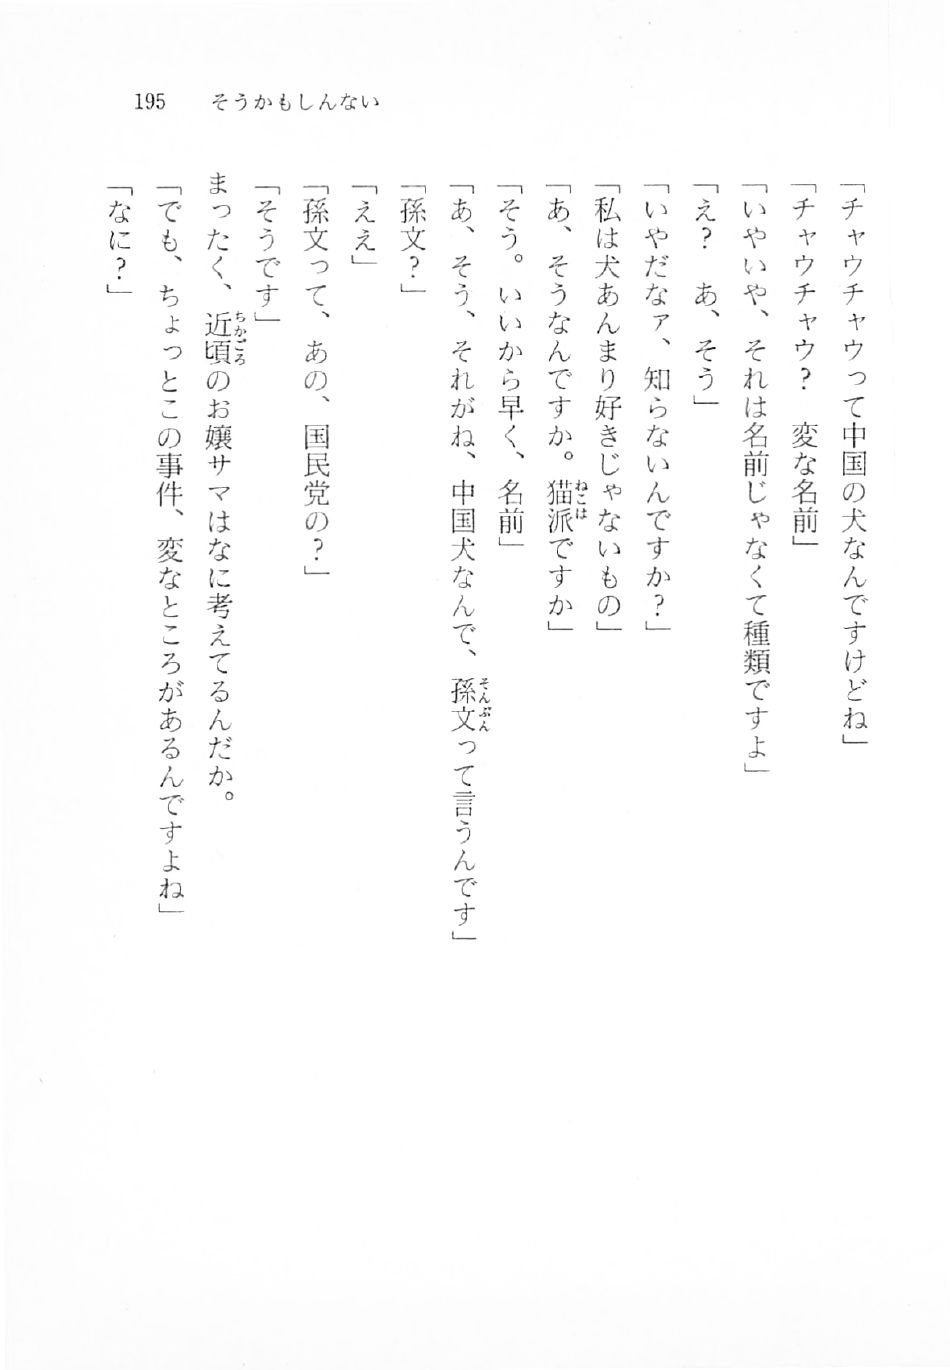 195　そうかもしんない
「チャウチャウって中国の犬なんですけどね」
「チャウチャウ？　変な名前」
「いやいや、それは名前じゃなくて種類ですよ」
「え？　あ、そう」
「いやだなァ、知らないんですか？」
「私は犬あんまり好きじゃないもの」
「あ、そうなんですか。猫派ですか」
「そう。いいから早く、名前」
「あ、そう、それがね、中国犬なんで、孫文って言うんです」
「孫文？」
「ええ」
「孫文って、あの、国民党の？」
「そうです」
まったく、近頃のお嬢サマはなに考えてるんだか。
「でも、ちょっとこの事件、変なところがあるんですよね」
「なに？」